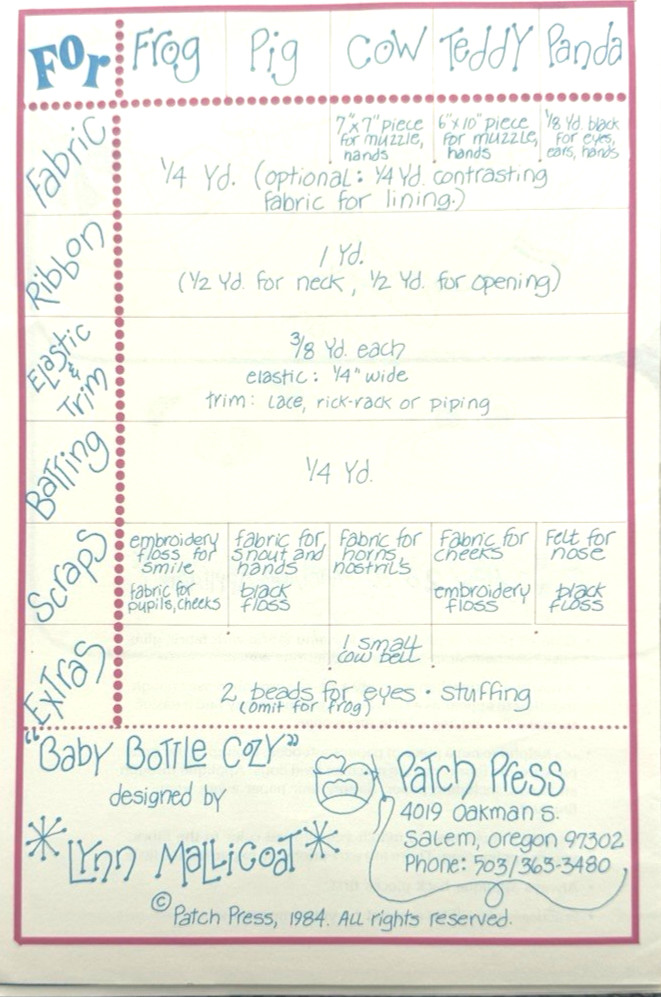 For Frog Pig Cow Teddy Panda
Fabric
7"x7" piece for muzzle, hands
6"x10" piece for muzzle, hands
1/8 Yd. black for eyes, ears, hands
1/4 Yd. (optional: 1/4 Yd. contrasting
fabric for lining.)
Ribbon
1 Yd.
(1/2 Yd. for neck, 1/2 Yd. for opening)
Elastic & Trim
3/8 Yd. each
elastic: 1/4" wide
trim: Lace, rick-rack or piping
Batting
1/4 Yd.
Scraps
embroidery floss for smile
fabric for pupils, cheeks
fabric for snout and hands
black floss
Fabric for horns, nostrils
Fabric for cheeks
embroidery floss
Felt for nose
black floss
Extras
1 small cow bell
2 beads for eyes • stuffing
(omit for frog)
"Baby Bottle Cozy"
designed by
*Lynn Mallicoat*
Patch Press
4019 Oakman S.
Salem, Oregon 97302
Phone: 503/363-3480
© Patch Press, 1984. All rights reserved.